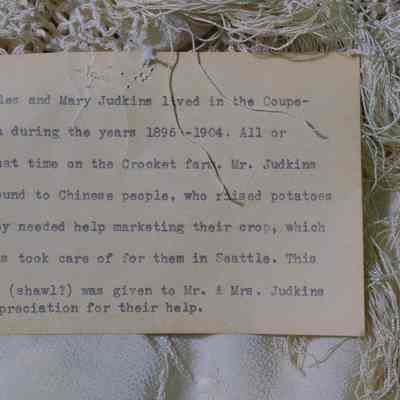 les and Mary Judkins lived in the Coupe-
during the years 1896-1904. All or
at time on the Crocket farm. Mr. Judkins
ound to Chinese people, who raised potatoes
y needed help marketing their crop, which
s took care of for them in Seattle. This
(shawl?) was given to Mr. & Mrs. Judkins
preciation for their help.